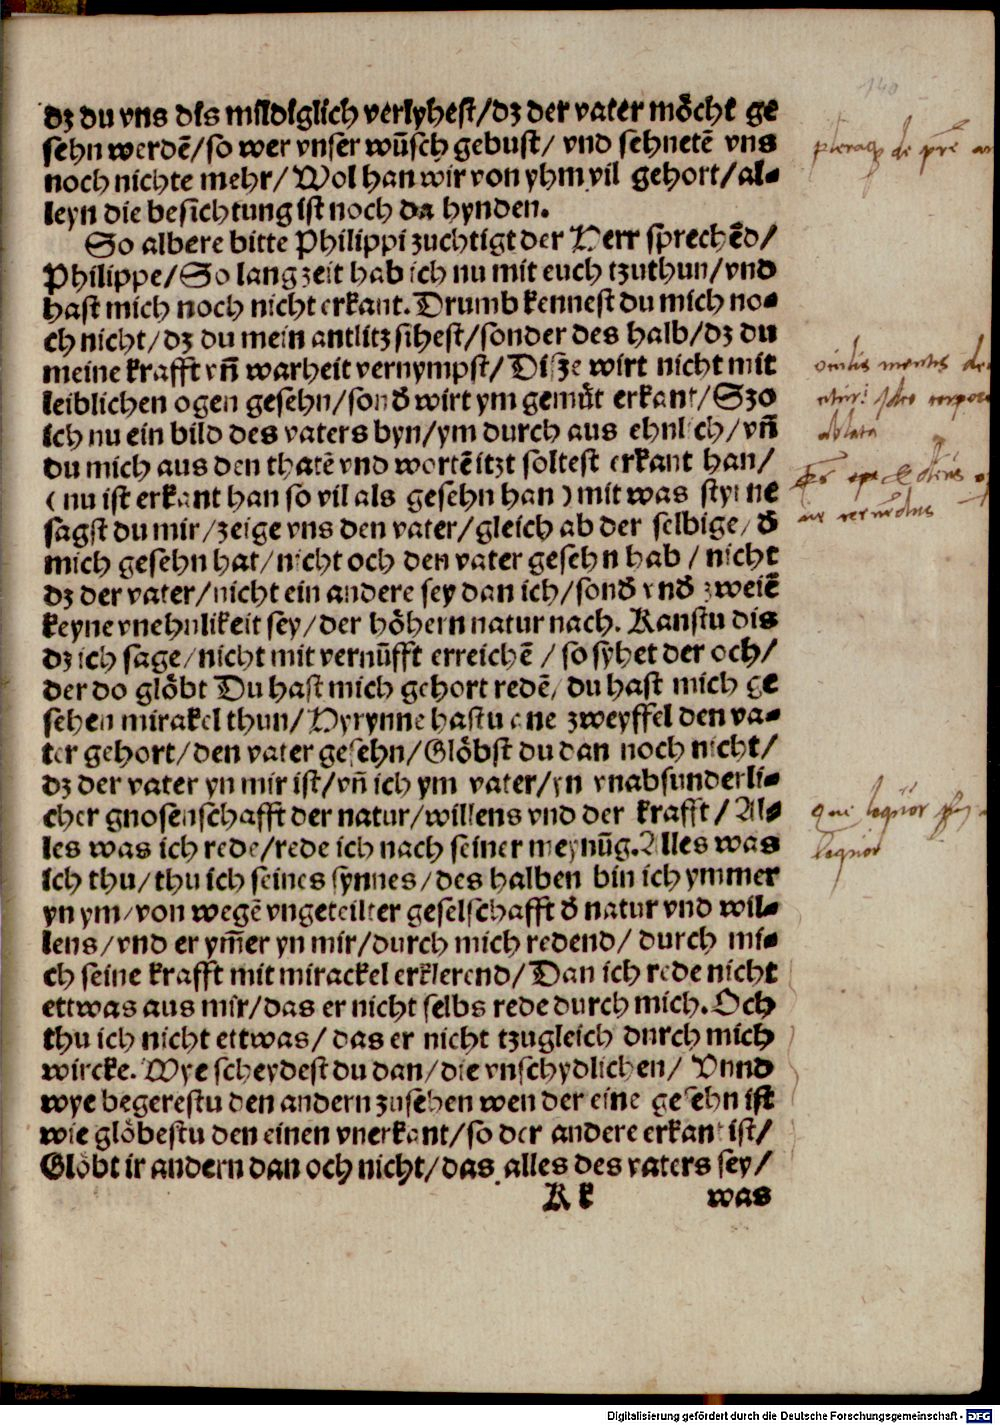 dʒ du vns dis mildiglich verlyhest/dʒ der vater möcht ge
sehn werdē/so wer vnser wūsch gebust/ vnd sehnetē vns
noch nichte mehr/ Wol han wir von yhm vil gehort/al⸗
leyn die besichtung ist noch da hynden.
So albere bitte Philippi zuchtigt der Herr sprechēd/
Philippe/ So lang zeit hab ich nu mit euch tzuthun/vnd
hast mich noch nicht erkant. Drumb kennest du mich no⸗
ch nicht/dʒ du mein antlitz sihest/sonder des halb/dʒ du
meine krafft vñ warheit vernympst/ Disze wirt nicht mit
leiblichen ogen gesehn/sonđ wirt ym gemüt erkant/ Szo
ich nu ein bild des vaters byn/ym durch aus ehnlich/vñ
du mich aus den thatē vnd wortē itzt soltest erkant han/
(nu ist erkant han so vil als gesehn han) mit was styrne
sagst du mir/zeige vns den vater/gleich ab der selbige/đ
mich gesehn hat/nicht och den vater gesehn hab/ nicht
dʒ der vater/nicht ein andere sey dan ich/sonđ vnđ zweiē
keyne vnehnlikeit sey/der höhern natur nach. Kanstu dis
dʒ ich sage/nicht mit vernūfft erreichē/so syhet der och/
der do glöbt Du hast mich gehort redē/du hast mich ge
sehen mirakel thun/ Hyrynne hastu one zweyffel den va⸗
ter gehort/den vater gesehn/Glöbst du dan noch nicht/
dʒ der vater yn mir ist/vñ ich ym vater/yn vnabsunderli⸗
cher gnosenschafft der natur/willens vnd der krafft/ Al⸗
les was ich rede/rede ich nach seiner meynūg. Alles was
ich thu/thu ich seines synnes/des halben bin ich ymmer
yn ym/von wegē vngeteilter geselschafft đ natur vnd wil⸗
lens/vnd er ym̄er yn mir/durch mich redend/ durch mi⸗
ch seine krafft mit mirackel erklerend/ Dan ich rede nicht
ettwas aus mir/das er nicht selbs rede durch mich. Och
thu ich nicht ettwas/ das er nicht tzugleich durch mich
wircke. Wye scheydest du dan/die vnschydlichen/ Vnnd
wye begerestu den andern zusehen wen der eine gesehn ist
wie glöbestu den einen vnerkant/so der andere erkant ist/
Glöbt ir andern dan och nicht/das alles des vaters sey/
K k was
140
Digitalisierung gefördert durch die Deutsche Forschungsgemeinschaft - DFG